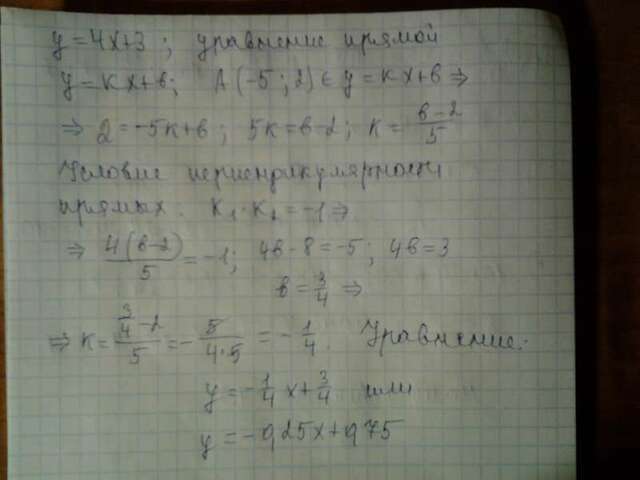 y=4x+3; уравнение прямой
y=kx+в; A(-5;2)∈y=kx+в⇒
⇒ 2=-5k+в; 5k=в-2; k=(в-2)/5
Условие перпендикулярности
прямых: k₁·k₂=-1⇒
⇒ 4(в-2)/5=-1; 4в-8=-5; 4в=3
в=3/4 ⇒
⇒ k=(3/4-2)/5=-5/(4·5)=-1/4. Уравнение:
y=-1/4x+3/4 или
y=-0,25x+0,75